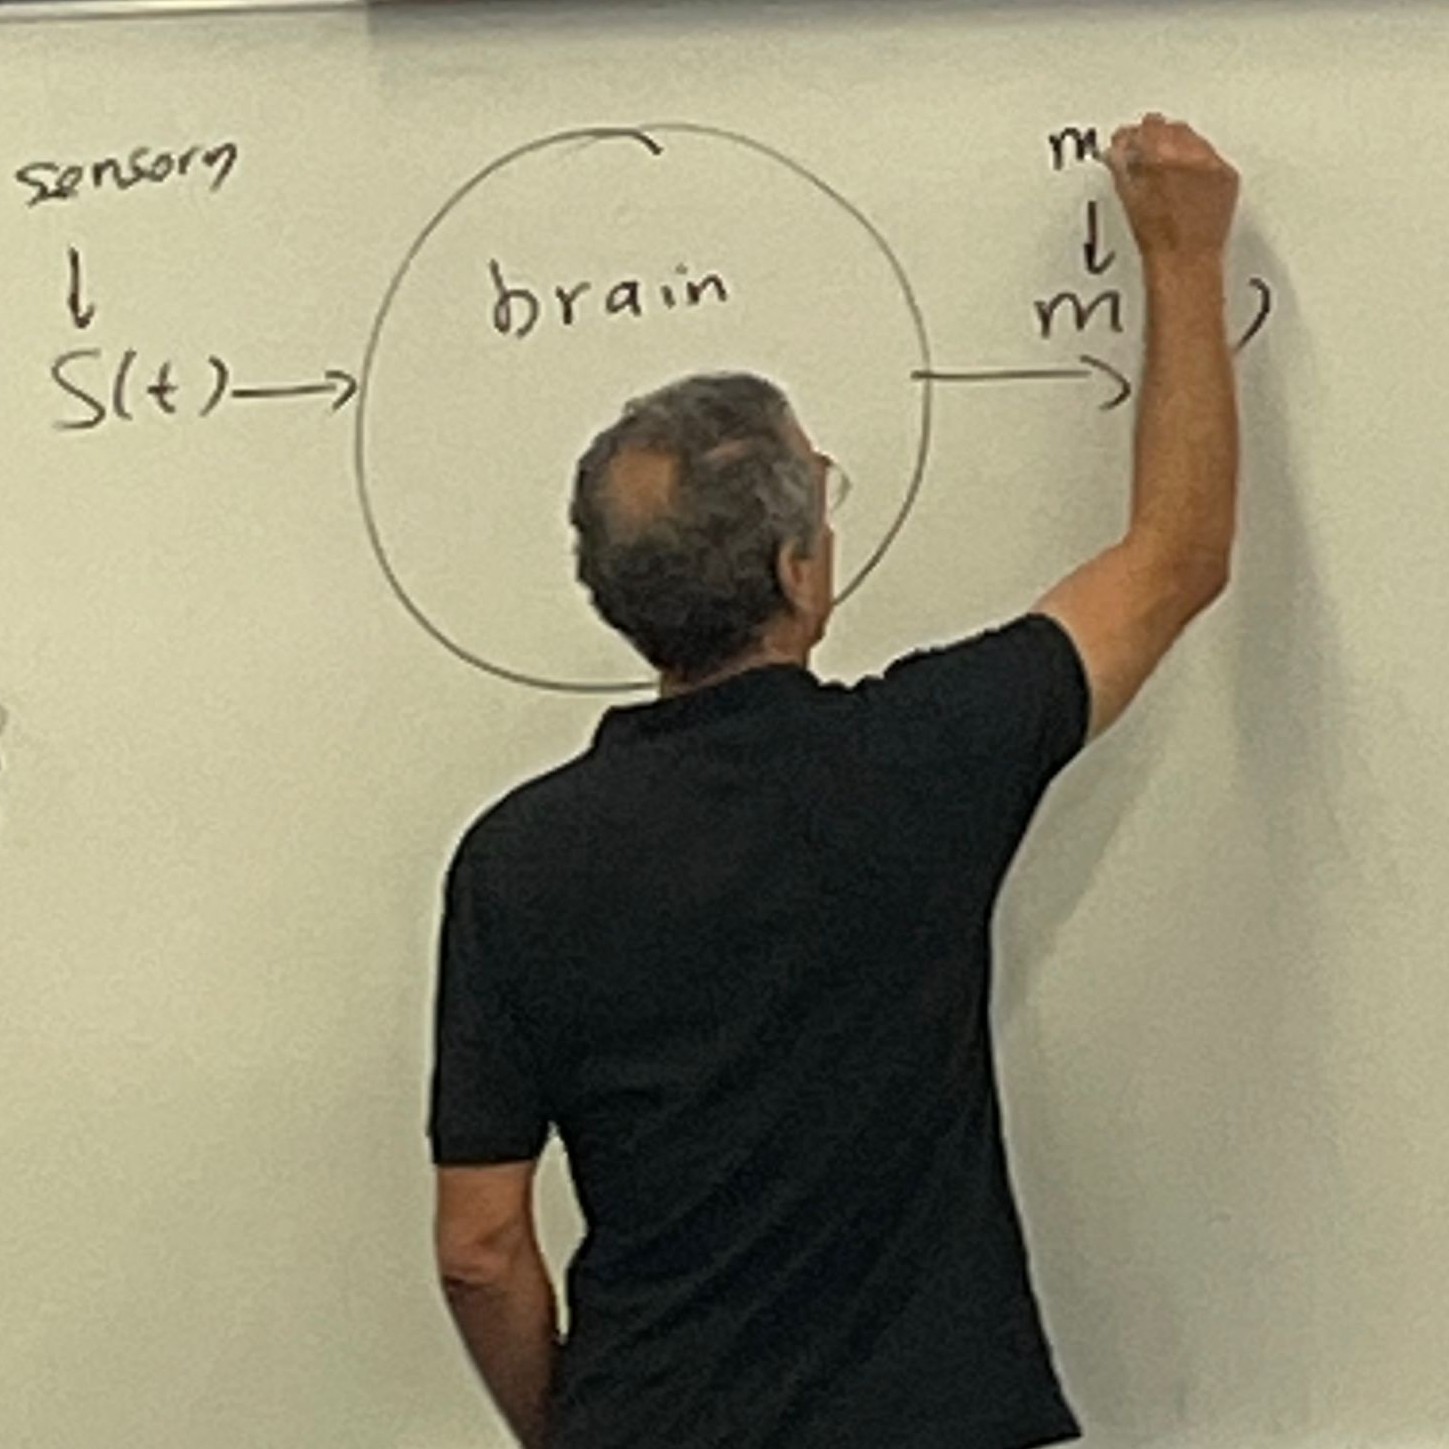 sensory
S(t)
brain
m
m )